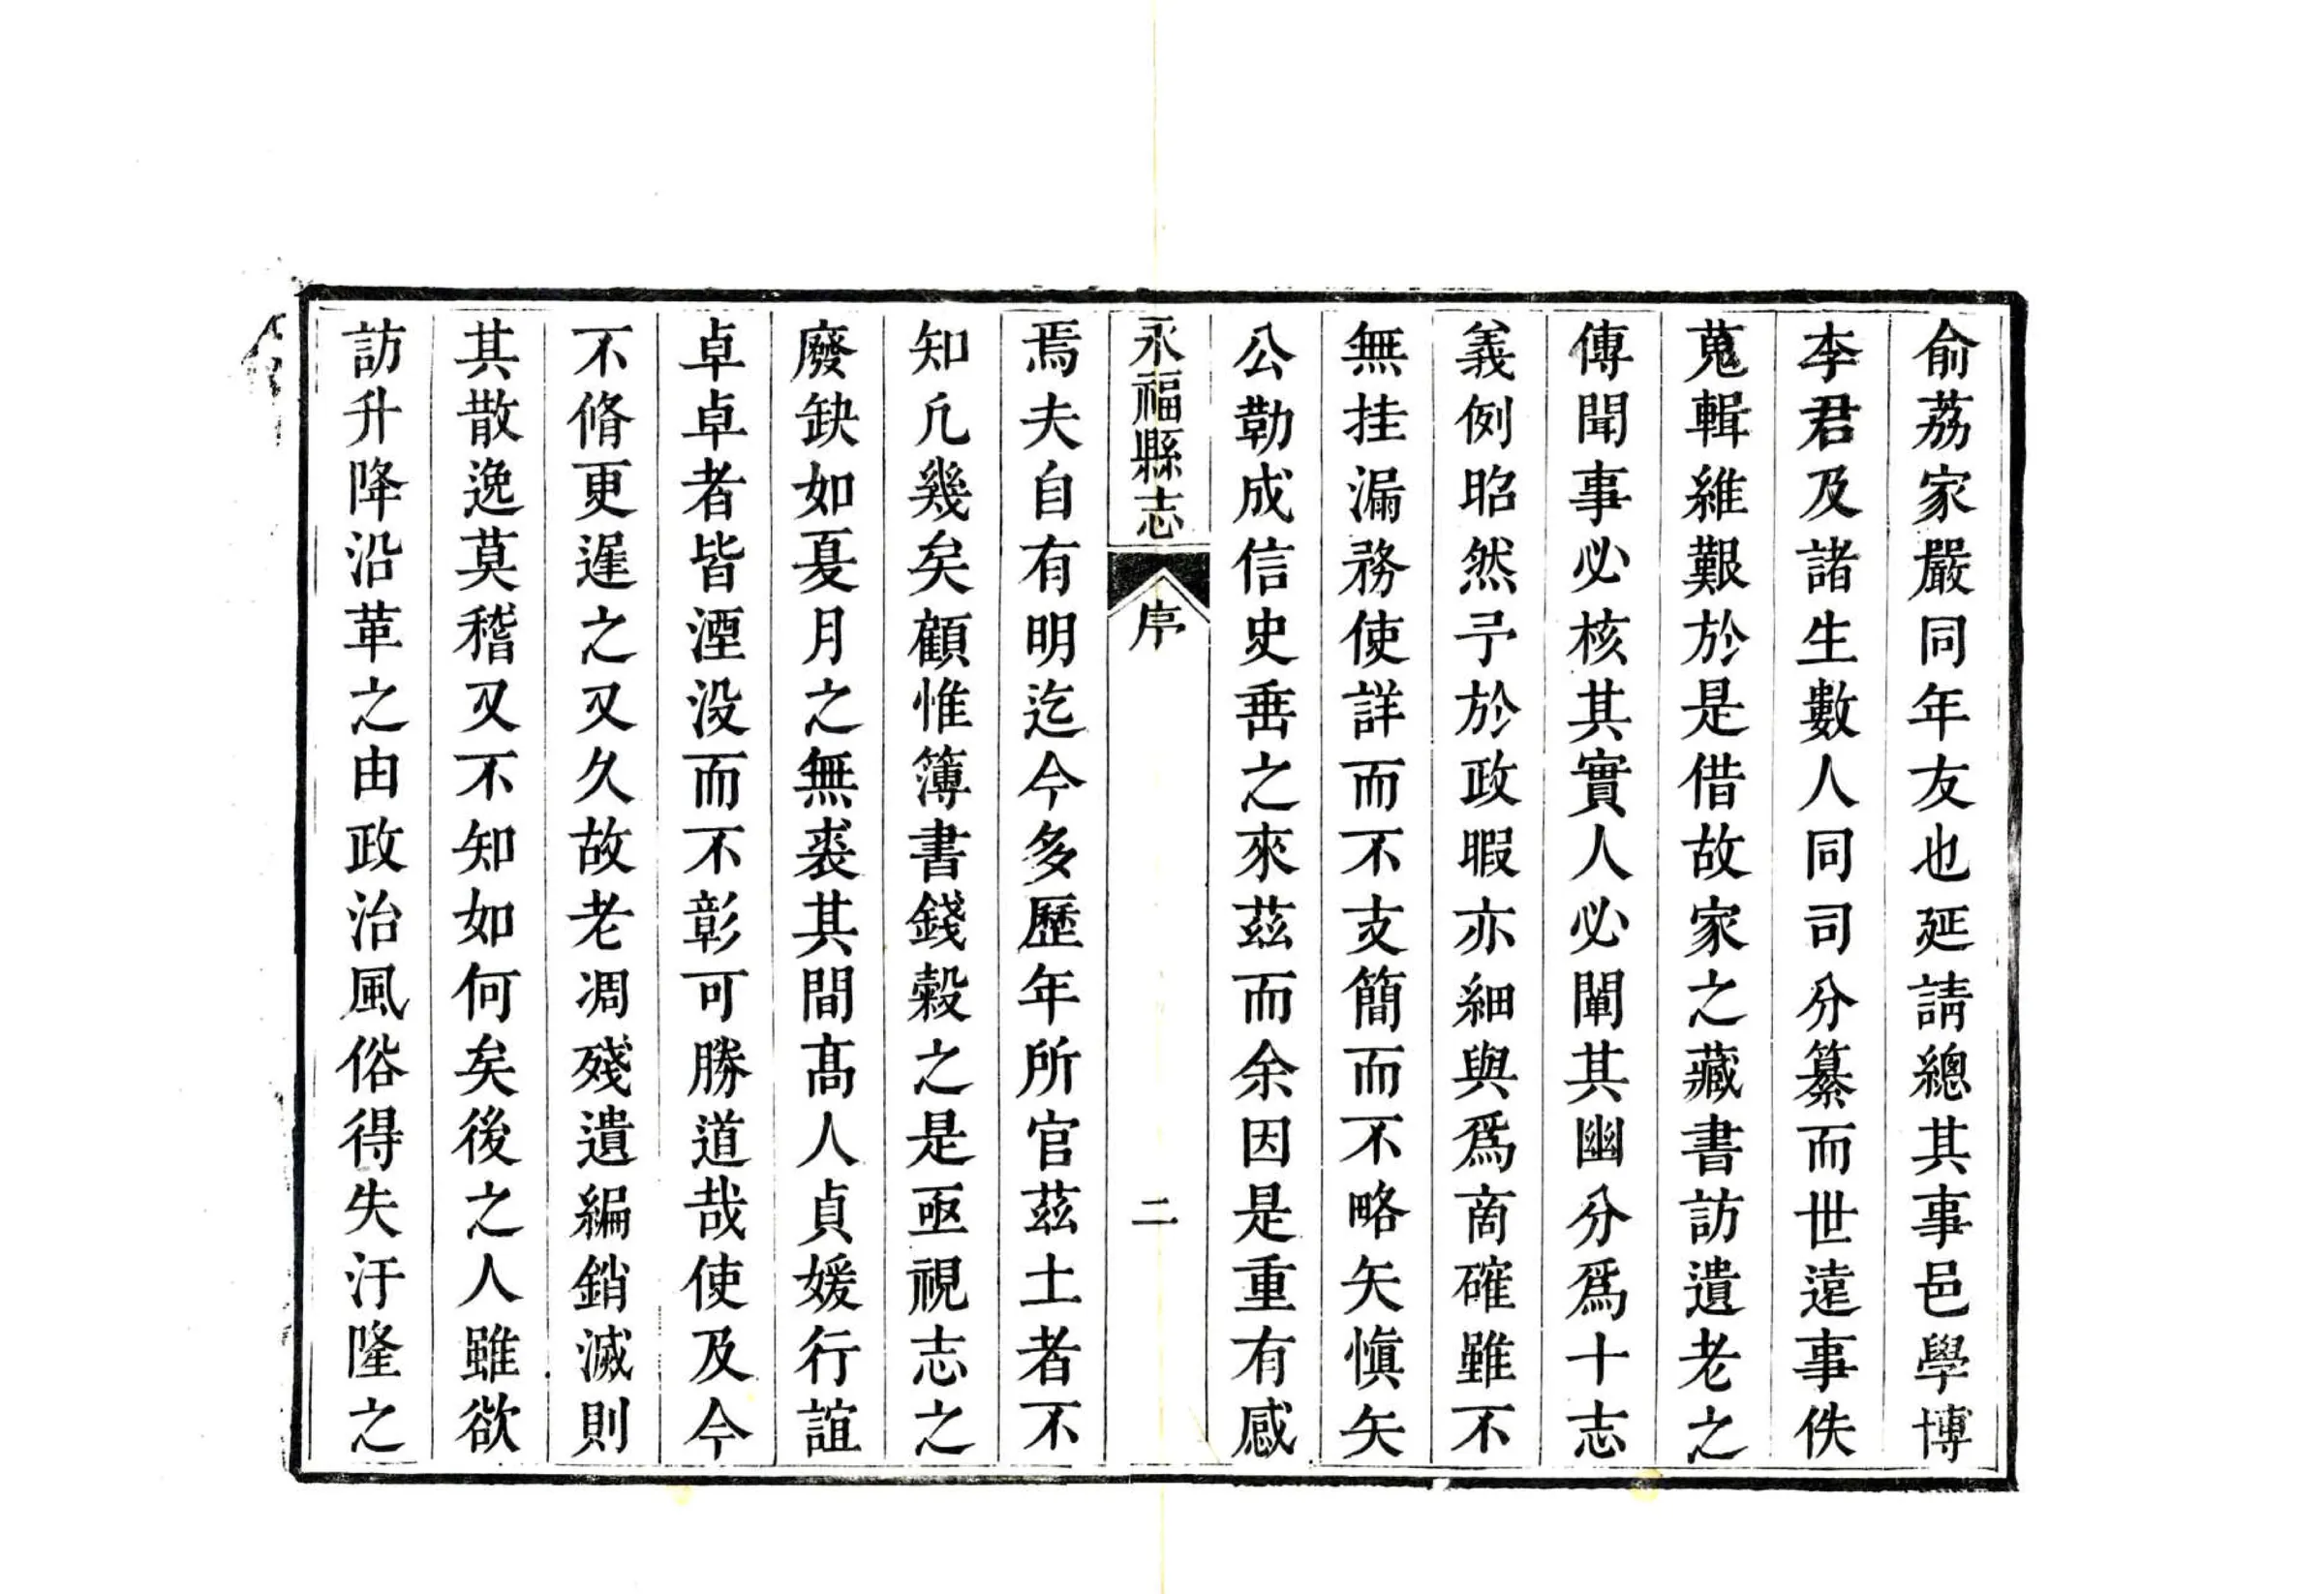 俞荔家嚴同年友也延請總其事邑學博
李君及諸生數人同司分纂而世遠事佚
蒐輯維艱於是借故家之藏書訪遺老之
傳聞事必核其實人必闡其幽分爲十志
義例昭然予於政暇亦細與爲商確雖不
無挂漏務使詳而不支簡而不略矢愼矢
公勒成信史垂之來茲而余因是重有感
永福縣志
序
二
焉夫自有明迄今多歷年所官茲土者不
知凢幾矣顧惟簿書錢穀之是亟視志之
廢缺如夏月之無裘其間髙人貞媛行誼
卓卓者皆湮没而不彰可勝道哉使及今
不脩更遲之又久故老凋殘遺編銷滅則
其散逸莫稽又不知如何矣後之人雖欲
訪升降沿革之由政治風俗得失汙隆之